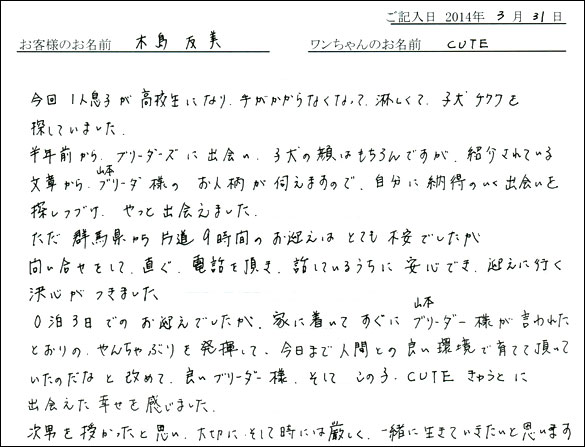 ご記入日 2014年 3月 31日
お客様のお名前 木島 友美 ワンちゃんのお名前 CUTE
今回 1人息子が高校生になり、手がかからなくなって、淋しくて、子犬チワワを
探していました。
半年前から、ブリーダーズに出会い、子犬の顔はもちろんですが、紹介されている
文章から、山本ブリーダ様の お人柄が伺えますので、自分に納得のいく出会いを
探しつづけ、やっと出会えました。
ただ 群馬県から片道9時間のお迎えは とても不安でしたが
問い合せをして、直ぐ、電話を頂き、話しているうちに 安心でき、迎えに行く
決心が つきました。
0泊3日での お迎えでしたが、家に着いて すぐに 山本ブリーダー様が言われた
とおりの、やんちゃぶりを発揮して、今日まで人間との良い環境で育てて頂いて
いたのだなと 改めて、良いブリーダー様、そして この子、CUTE きゅうとに
出会えた幸せを感じました。
次男を授かったと思い、大切に、そして時には厳しく、一緒に生きていきたいと思います